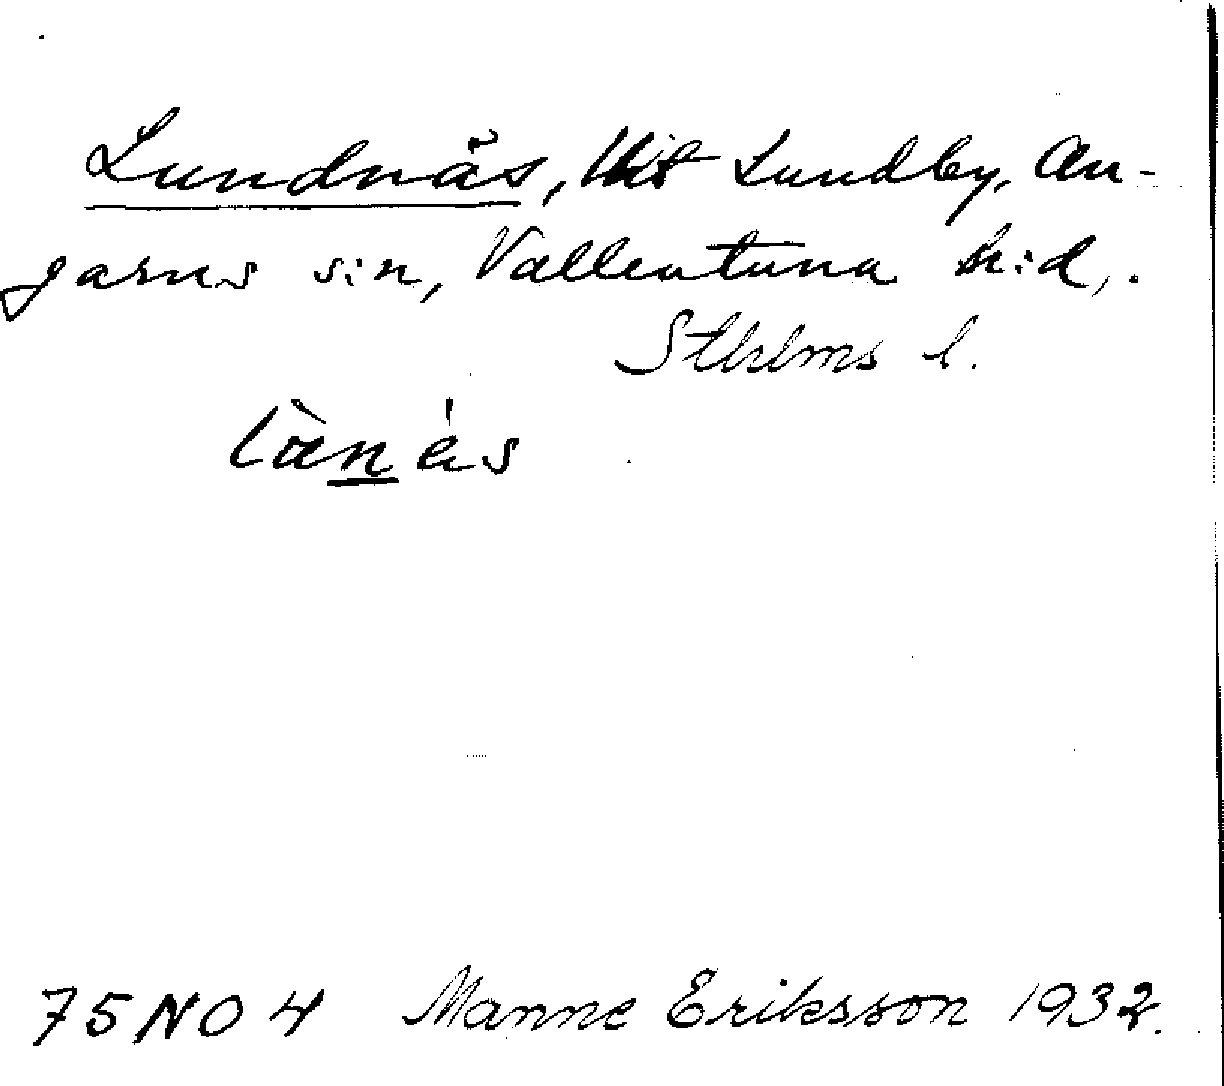 Lundnäs, till Lundby, An-
garns s:n, Vallentuna h:d,
Sthlms l.
75 NO 4 Manne Eriksson 1932.